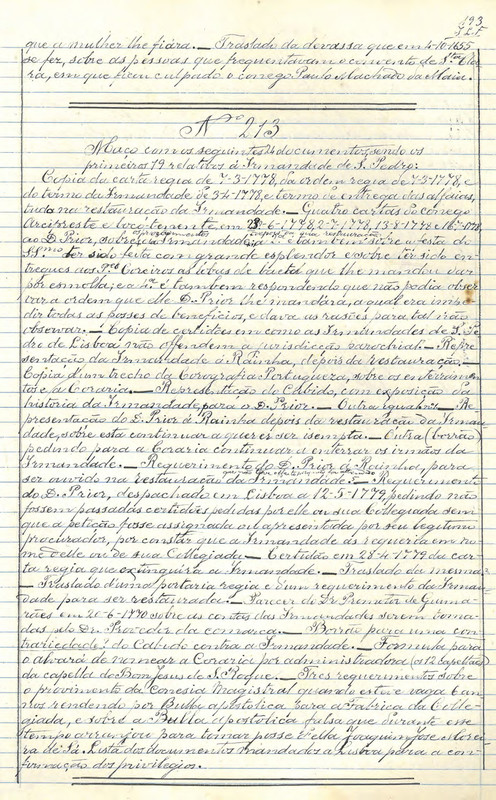 193
que a mulher lhe fiára. — Traslado da devassa que em 4-10-1655
se fez, sobre as pessoas que frequentavam o convento de S.ta Cla-
ra, em que ficou culpado o conego Paulo Machado da Maia.
Nº 213
Maço com os seguintes documentos, sendo os
primeiros 19 relativos á Irmandade de S. Pedro:
Copia da carta regia de 7-3-1778, da ordem regia de 7-3-1778, e
do termo da Irmandade de 3-4-1778, e termo de entrega das alfaias,
tudo na restauração da Irmandade. — Quatro cartas do conego
Arcipreste e
ao D. Prior, sobre a Irmandade e tambem sobre a festa do
ter sido feita com grande esplendor e sobre ter sido en-
tregues aos Coreiros as lobas de baeta que lhe mandou dar
por esmola; e a 4ª é tambem respondendo que não podia obser-
var a ordem que elle D. Prior lhe mandára, a qual era impe-
dir todas as posses de beneficios, e dava as rasões para tal não
observar. — Copia de certidões em como as Irmandades de S. Pe-
dro de Lisboa não offendem a jurisdicção parochial. — Repre-
sentação da Irmandade á Rainha, depois da restauração. —
Copia d'um trecho da Corografia Portugueza, sobre os enterramen-
tos e a Coraria. — Representação do Cabido, com exposição da
historia da Irmandade, para o D. Prior. — Outra igual. — Re-
presentação do D. Prior á Rainha depois da restauração da Irman-
dade, sobre esta continuar a querer ser isempta. — Outra (borrão)
pedindo para a Coraria continuar a enterrar os irmãos da
Irmandade. — Requerimento do D. Prior á Rainha, para
ser ouvido na restauração da Irmandade. — Requerimento
do D. Prior, despachado em Lisboa a 12-5-1779, pedindo não
fossem passadas certidões pedidas por elle ou sua Collegiada sem
que a petição fosse assignada ou apresentada por seu legitimo
procurador, por constar que a Irmandade as requeria em no-
me d'elle ou de sua Collegiada. — Certidão em 28-4-1779 da car-
ta regia que extinguira a Irmandade. — Traslado da mesma.
— Traslado d'uma portaria regia e d'um requerimento da Irman-
dade para ser restaurada. — Parecer do Dr Promotor de Guima-
rães em 20-6-1790 sobre as contas das Irmandades serem toma-
das pelo Dr. Provedor da comarca. — Borrão para uma con-
trariedade do Cabido contra a Irmandade. — Formula para
o alvará de nomear a Coraria por administradora (os 12 capellães)
da capella do Bom Jesus de S. Roque. — Tres requerimentos sobre
o provimento da Conesia Magistral quando esteve vaga 6 an-
nos rendendo por Bulla apostolica para a Fabrica da Colle-
giada, e sobre a Bulla apostolica falsa que durante esse
tempo arranjou para tomar posse d'ella Joaquim José Morei-
ra de Sá. Lista dos documentos mandados a Lisboa para a con-
firmação dos privilegios.